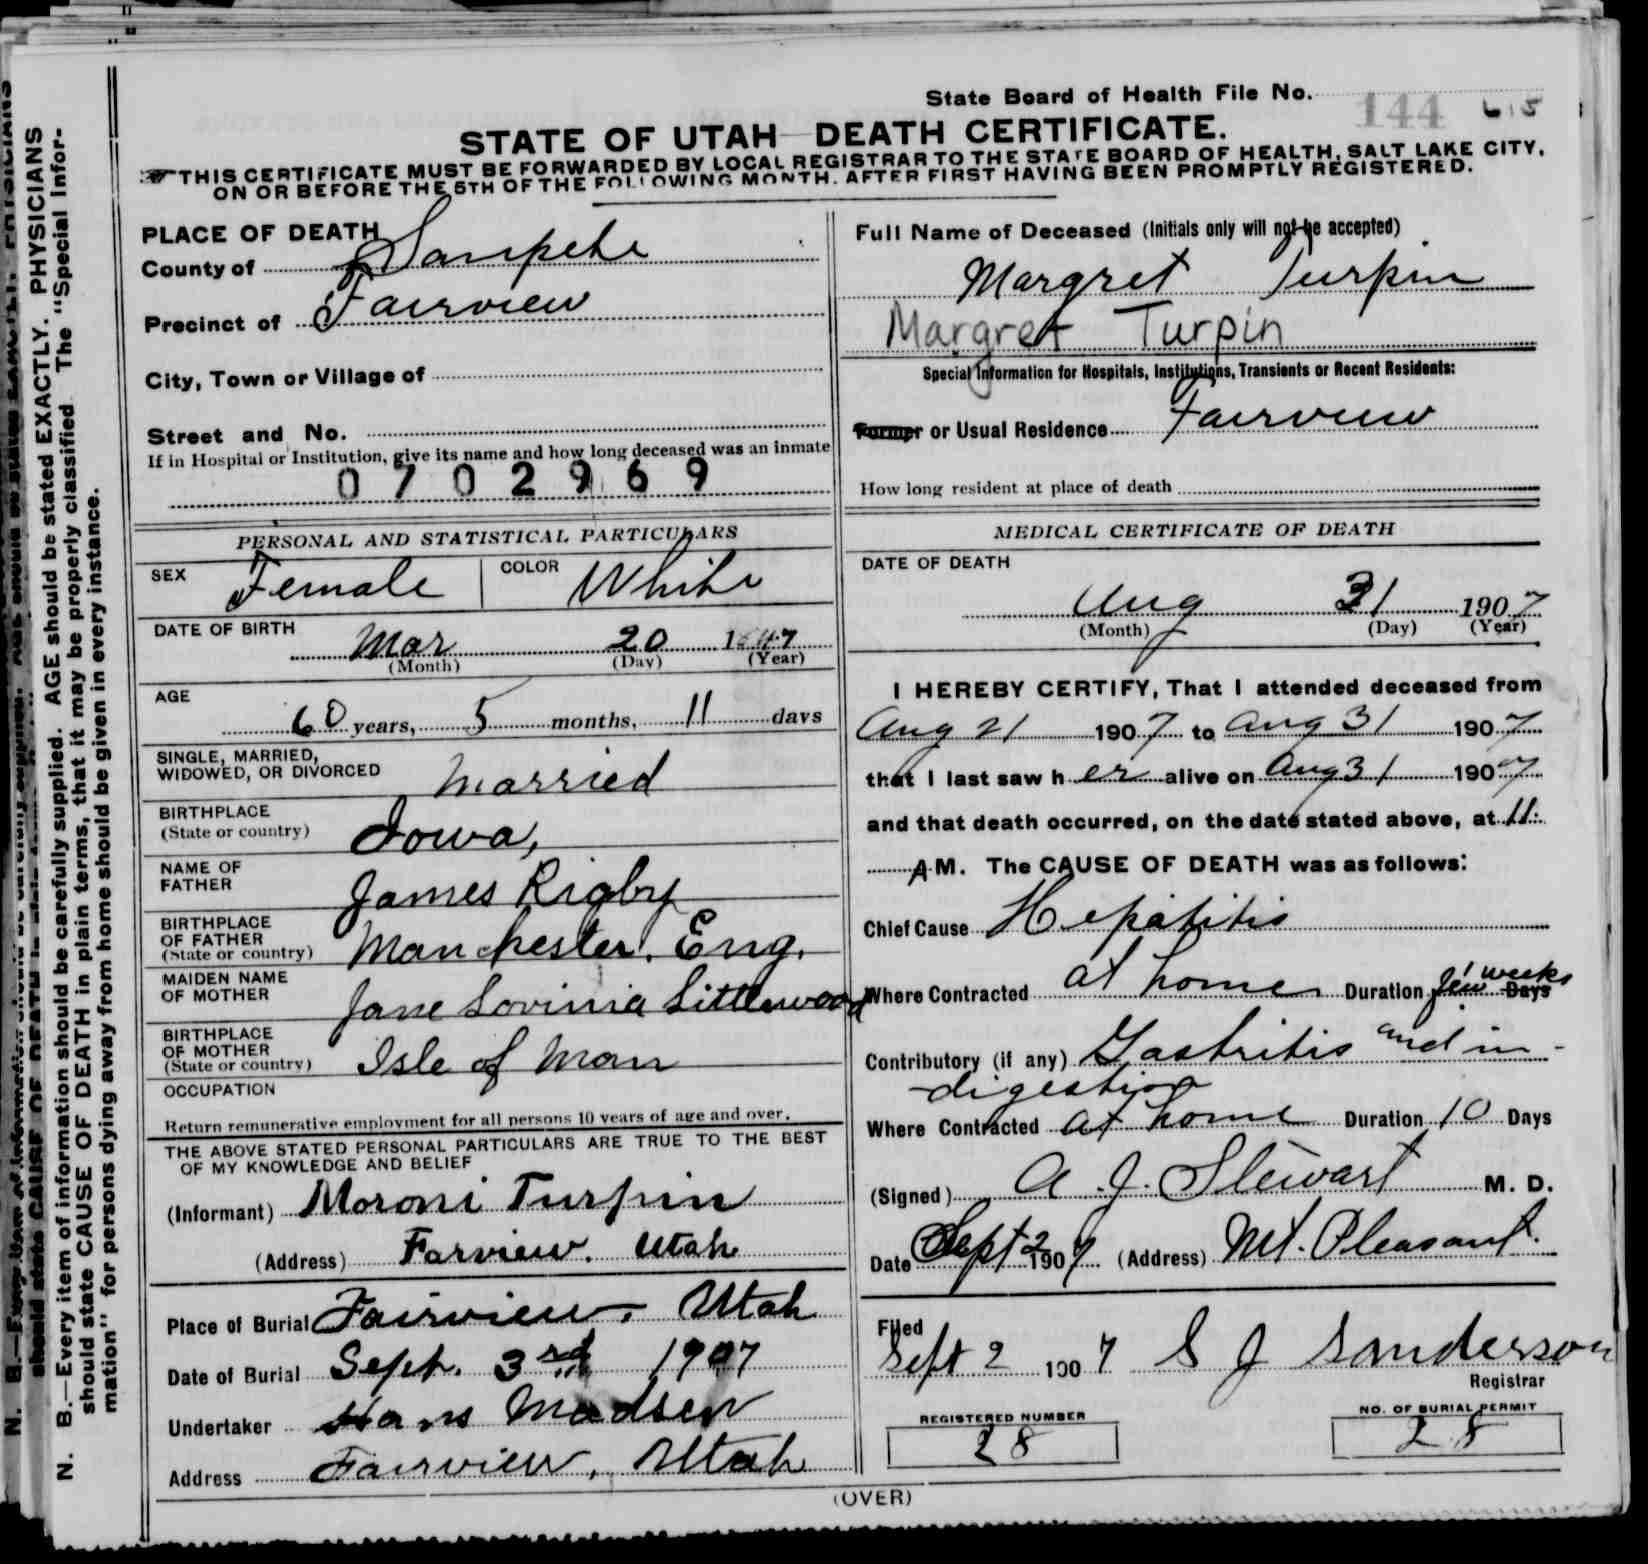 State Board of Health File No. 144 615
STATE OF UTAH—DEATH CERTIFICATE.
THIS CERTIFICATE MUST BE FORWARDED BY LOCAL REGISTRAR TO THE STATE BOARD OF HEALTH, SALT LAKE CITY,
ON OR BEFORE THE 5TH OF THE FOLLOWING MONTH, AFTER FIRST HAVING BEEN PROMPTLY REGISTERED.
PLACE OF DEATH
County of Sanpete
Precinct of Fairview
City, Town or Village of
Street and No.
If in Hospital or Institution, give its name and how long deceased was an inmate
0702969
PERSONAL AND STATISTICAL PARTICULARS
SEX Female COLOR White
DATE OF BIRTH
Mar 20 1847
(Month) (Day) (Year)
AGE
60 years, 5 months, 11 days
SINGLE, MARRIED,
WIDOWED, OR DIVORCED Married
BIRTHPLACE
(State or country) Iowa,
NAME OF
FATHER James Rigby
BIRTHPLACE
OF FATHER
(State or country) Manchester, Eng.
MAIDEN NAME
OF MOTHER Jane Lovinia Littlewood
BIRTHPLACE
OF MOTHER
(State or country) Isle of Man
OCCUPATION
Return remunerative employment for all persons 10 years of age and over.
THE ABOVE STATED PERSONAL PARTICULARS ARE TRUE TO THE BEST
OF MY KNOWLEDGE AND BELIEF
(Informant) Moroni Turpin
(Address) Farview. Utah
Place of Burial Fairview, Utah
Date of Burial Sept. 3rd 1907
Undertaker Hans Madsen
Address Fairview, Utah
Full Name of Deceased (Initials only will not be accepted)
Margret Turpin
Margret Turpin
Special Information for Hospitals, Institutions, Transients or Recent Residents:
Former or Usual Residence Fairview
How long resident at place of death
MEDICAL CERTIFICATE OF DEATH
DATE OF DEATH
Aug 31 1907
(Month) (Day) (Year)
I HEREBY CERTIFY, That I attended deceased from
Aug 21 1907 to Aug 31 1907
that I last saw her alive on Aug 31 1907
and that death occurred, on the date stated above, at 11:
A M. The CAUSE OF DEATH was as follows:
Chief Cause Hepatitis
Where Contracted at home Duration few weeks Days
Contributory (if any) Gastritis and in-
digestion
Where Contracted at home Duration 10 Days
(Signed) A. J. Stewart M. D.
Date Sept 2 1907 (Address) Mt. Pleasant.
Filed
Sept 2 1907 S J Sanderson
Registrar
REGISTERED NUMBER
28
NO. OF BURIAL PERMIT
28
(OVER)
N. B.—Every item of information should be carefully supplied. AGE should be stated EXACTLY. PHYSICIANS
should state CAUSE OF DEATH in plain terms, that it may be properly classified The "Special Infor-
mation" for persons dying away from home should be given in every instance.